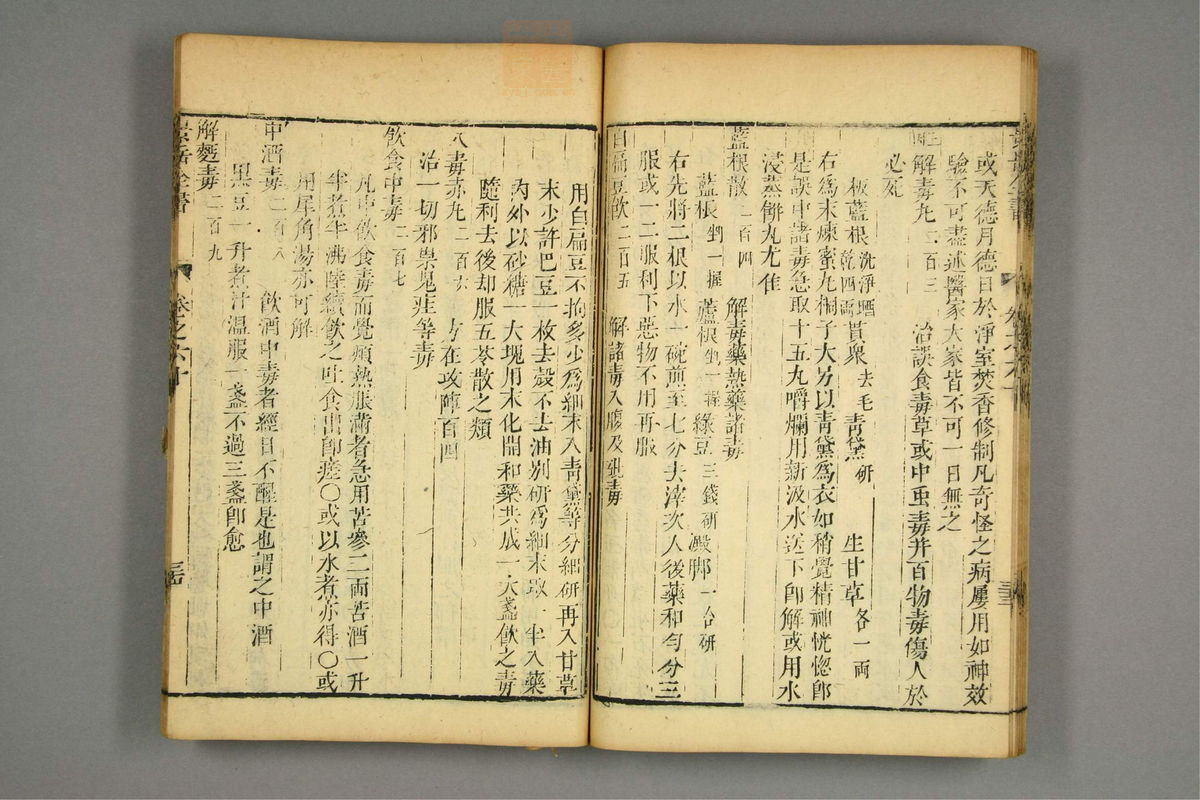 或天德月德日於淨室焚香修制凡奇怪之病屢用如神效
驗不可盡述醫家大家皆不可一日無之
解毒丸二百三 治誤食毒草或中䖝毒并百物毒傷人於
必死
板藍根洗淨晒乾四兩 貫衆去毛 青黛研 生甘草各一兩
右為末煉蜜丸桐子大另以青黛為衣如稍覺精神恍惚卽
是誤中諸毒急取十五丸嚼爛用新汲水送下卽解或用水
浸蒸餅丸尤佳
藍根散二百四 解毒藥熱藥諸毒
藍根剉一握 蘆根剉一握 綠豆三錢研 澱脚一合研
右先將二根以水一碗煎至七分去滓次入後藥和勻分三
服或一二服利下惡物不用再服
白扁豆飲二百五 解諸毒入腹及砒毒
用白扁豆不拘多少為細末入青黛等分細研再入甘草
末少許巴豆一枚去殼不去油别研為細末取一半入藥
内外以砂糖一大塊用水化開和藥共成一大盞飲之毒
隨利去後却服五苓散之類
八毒赤丸二百六 方在攻陣百四
治一切邪祟鬼疰等毒
飲食中毒二百七
凡中飲食毒而覺煩熱脹滿者急用苦參二兩苦酒一升
半煮半沸陸續飲之吐食出卽瘥〇或以水煮亦得〇或
用犀角湯亦可解
中酒毒二百八 飲酒中毒者經日不醒是也謂之中酒
黑豆一升煮汁溫服一盞不過三盞卽愈
解麪毒二百九
景岳全書 卷之六十 三四